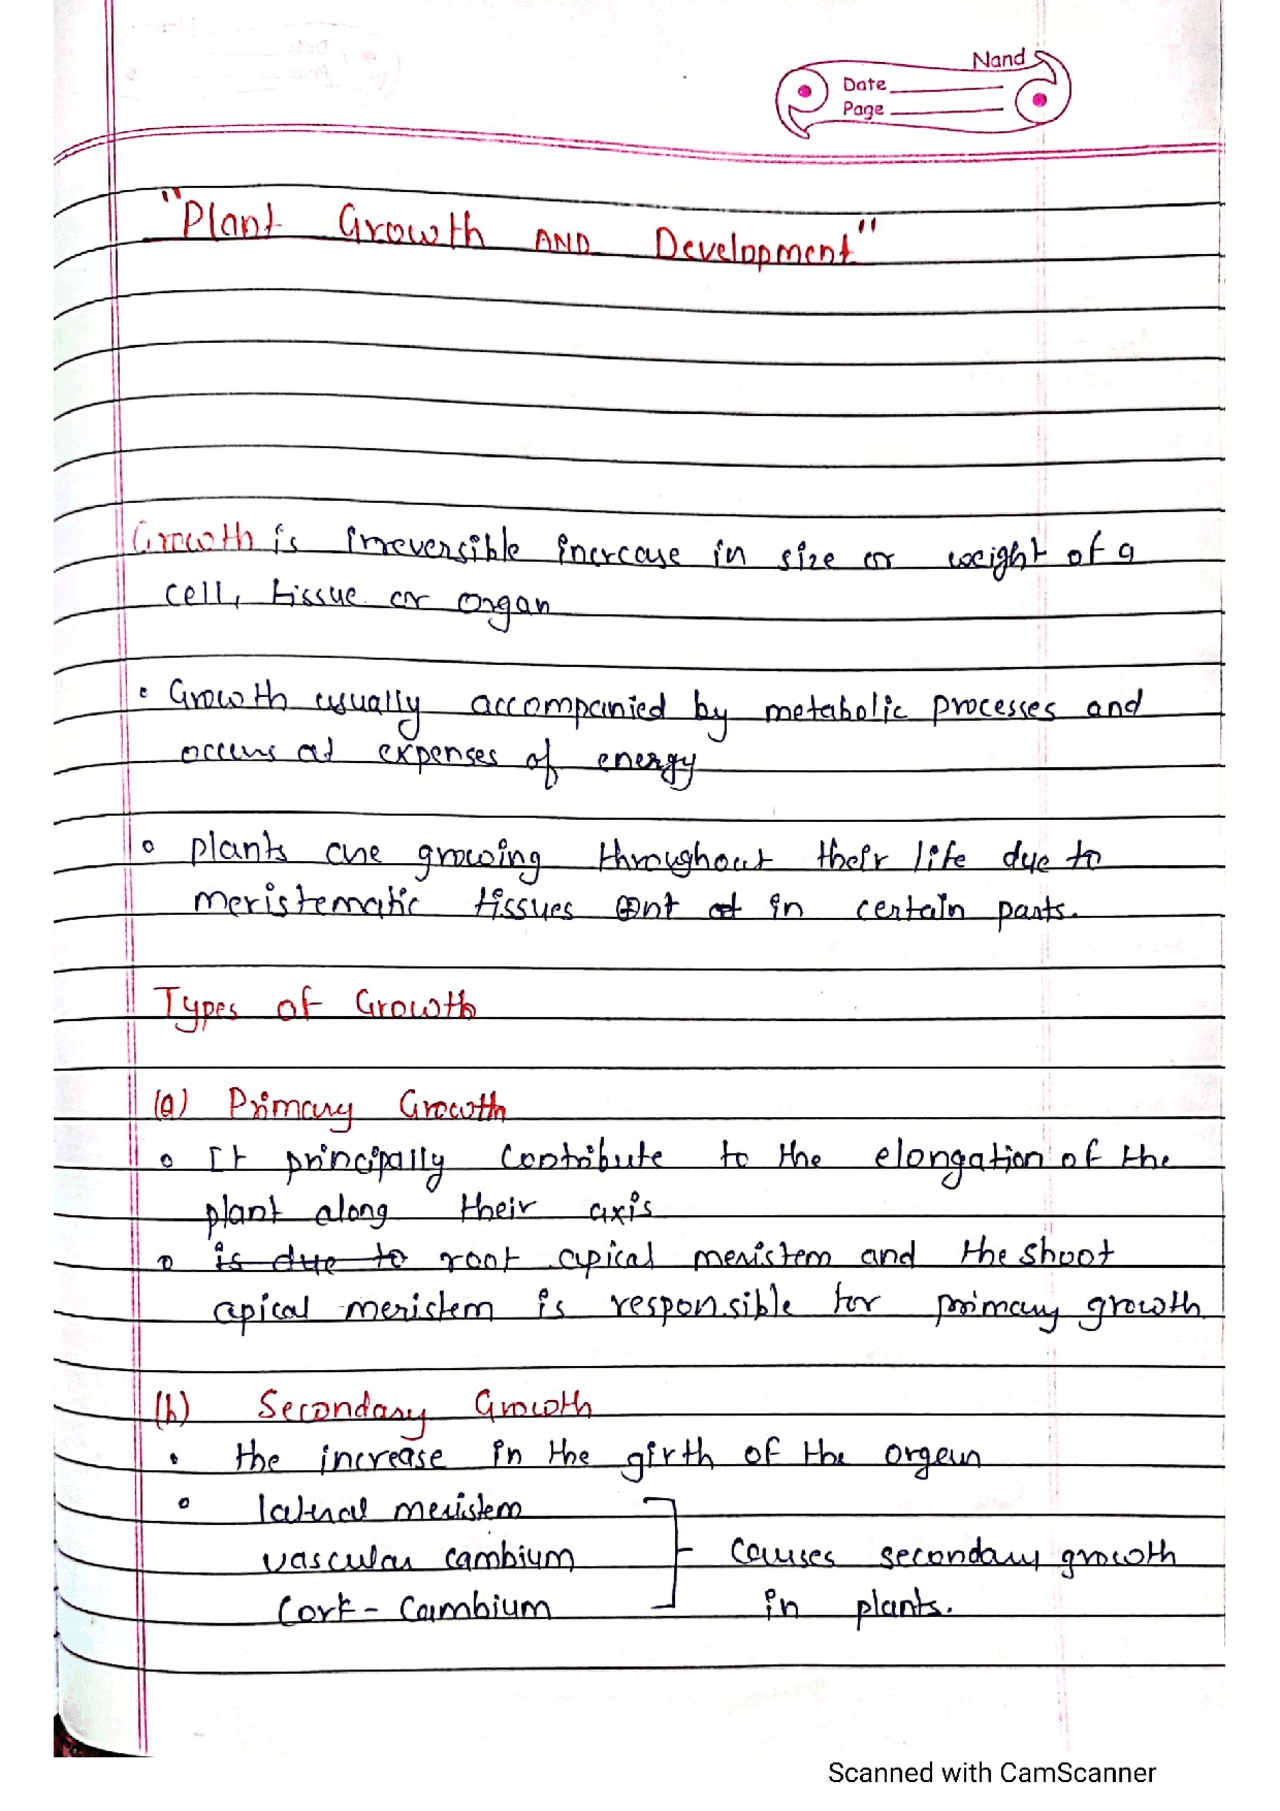 Nand
Date
Page
"Plant Growth AND Development"
Growth is irreversible increase in size or weight of a
cell, tissue or organ
• Growth usually accompanied by metabolic processes and
occurs at expenses of energy
o plants are growing throughout their life due to
meristematic tissues in certain parts.
Types of Growth
(a) Primary Growth
o It principally contribute to the elongation of the
plant along their axis
o is due to root apical meristem and the shoot
apical meristem is responsible for primary growth
(b) Secondary Growth
• the increase in the girth of the organ
o lateral meristem
vascular cambium causes secondary growth
Cork - Cambium in plants.
Scanned with CamScanner